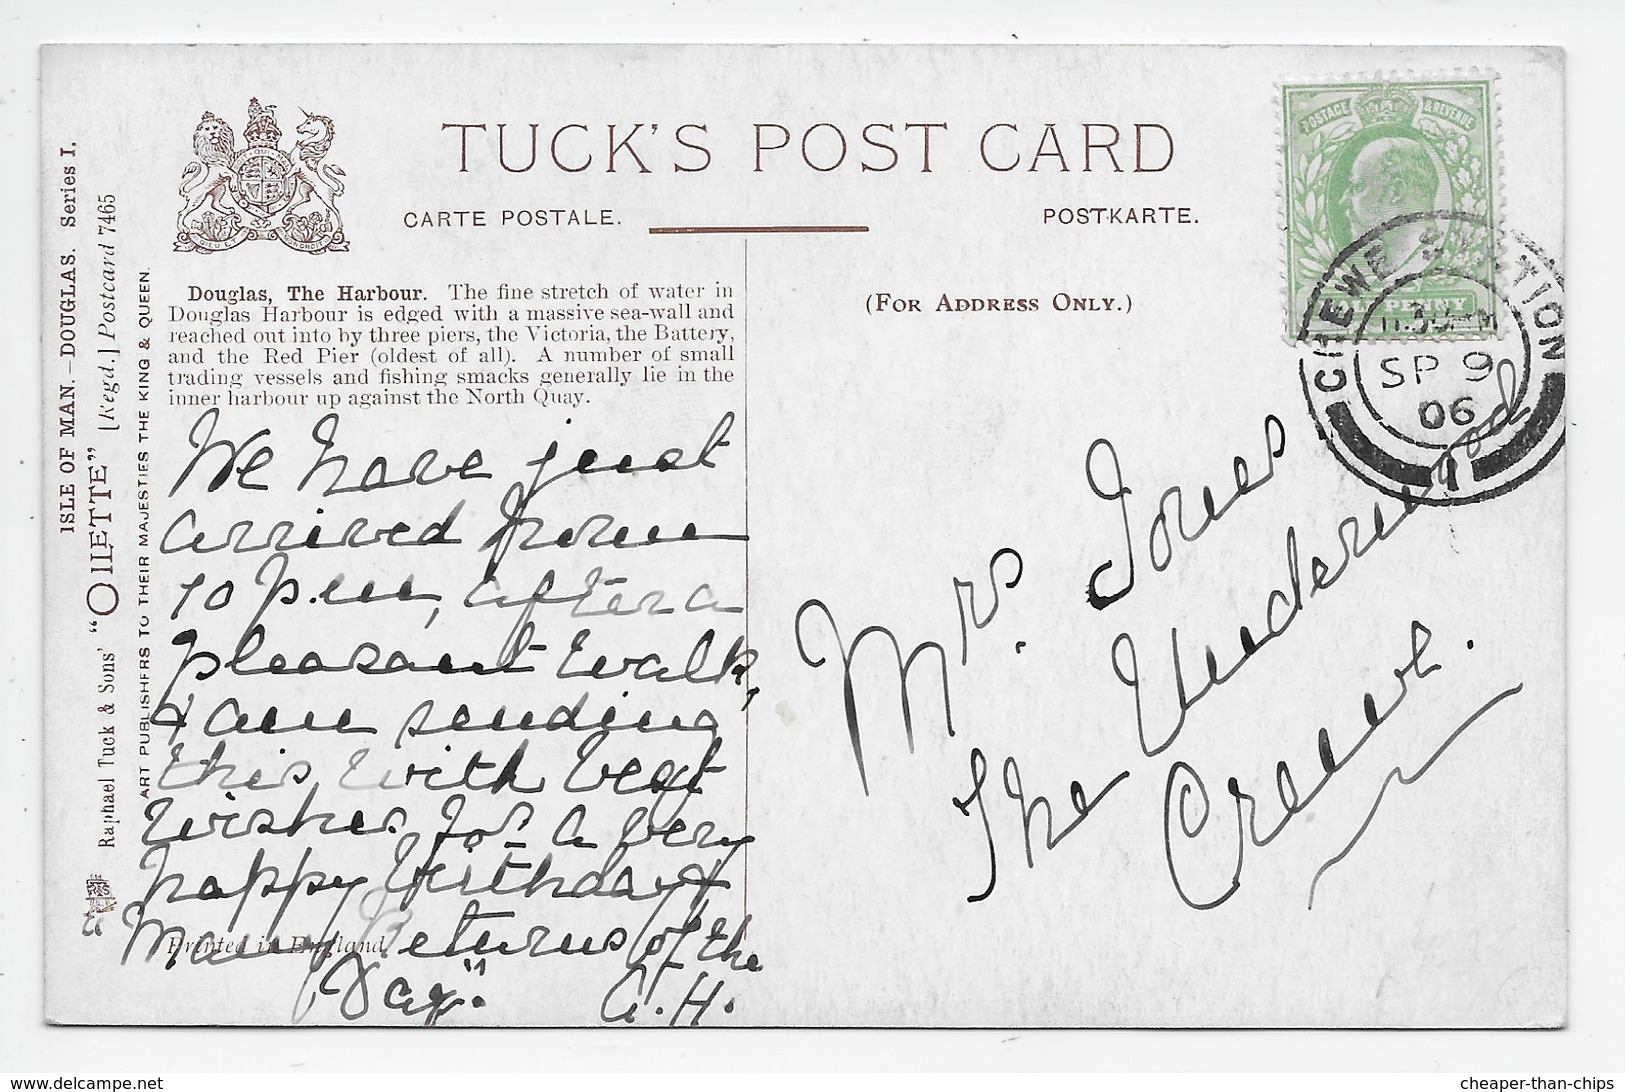 TUCK'S POST CARD
CARTE POSTALE.
POSTKARTE.
(FOR ADDRESS ONLY.)
ISLE OF MAN. – DOUGLAS. Series I.
Raphael Tuck & Sons' "OILETTE" [Regd.] Postcard 7465
ART PUBLISHERS TO THEIR MAJESTIES THE KING & QUEEN.
Douglas, The Harbour. The fine stretch of water in
Douglas Harbour is edged with a massive sea-wall and
reached out into by three piers, the Victoria, the Battery,
and the Red Pier (oldest of all). A number of small
trading vessels and fishing smacks generally lie in the
inner harbour up against the North Quay.
We have just
arrived home
10 p.m, after a
pleasant walk,
& am sending
this with best
wishes for a very
happy birthday &
"Many Returns of the
Day." A.H.
Printed in England
POSTAGE & REVENUE
HALFPENNY
CREWE STATION
11.30AM
SP 9
06
Mrs. Jones
The
Crewe.
cheaper-than-chips
www.delcampe.net